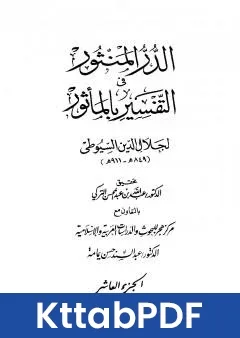 الدر المنثور
في
التفسير بالمأثور
لجلال الدين السيوطي
(٨٤٩هـ - ٩١١هـ)
تحقيق
الدكتور عبد الله بن عبد المحسن التركي
بالتعاون مع
مركز هجر للبحوث والدراسات العربية والإسلامية
الدكتور عبد السند حسن يمامة
الجزء العاشر
KttabPDF